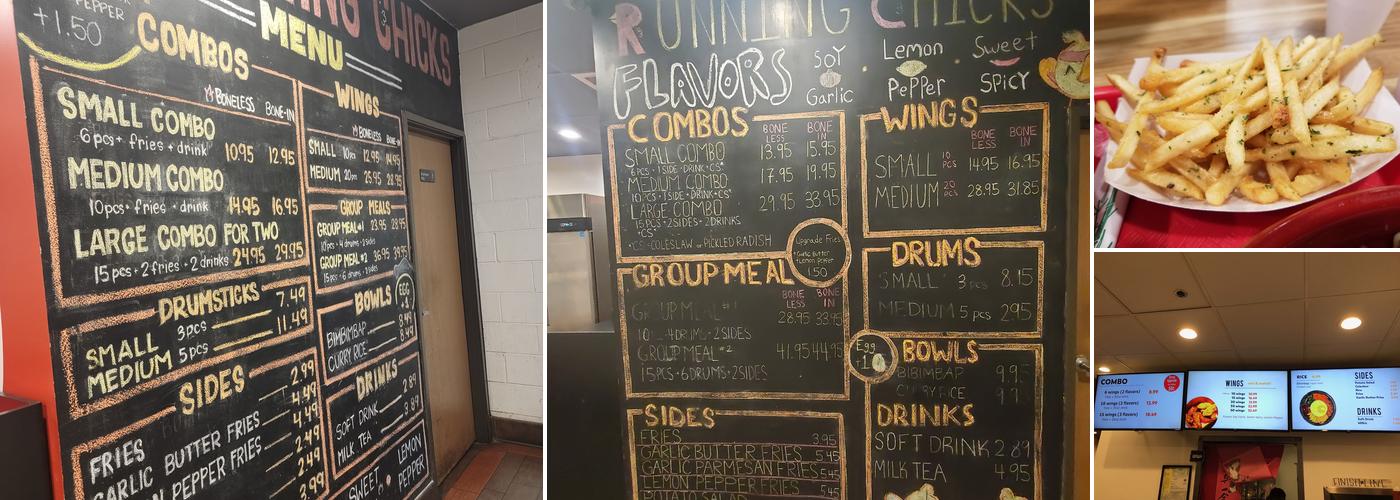 PEPPER
+1.50
CHICKS
MENU
COMBOS
BONELESS BONE-IN
SMALL COMBO
6pcs + fries + drink 10.95 12.95
MEDIUM COMBO
10pcs • fries • drink 14.95 16.95
LARGE COMBO FOR TWO
15 pcs • 2 fries • 2 drinks 24.95 29.95
DRUMSTICKS
SMALL 3pcs 7.49
MEDIUM 5pcs 11.49
SIDES
FRIES 2.99
GARLIC BUTTER FRIES 4.49
PEPPER FRIES 4.49
2.49
3.99
WINGS
BONELESS
SMALL 10pcs 12.95 14.95
MEDIUM 20pcs 25.95 28.95
GROUP MEALS
GROUP MEAL #1 23.95 28.95
10pcs • 4 drums • 2 sides
GROUP MEAL #2 36.95 39.95
15pcs • 6 drums • 2 sides
BOWLS
EGG
BIBIMBAP 8.49
CURRY RICE 8.49
DRINKS
SOFT DRINK 2.89
MILK TEA 3.89
SWEET
LEMON
PEPPER
RUNNING CHICKS
FLAVORS
SOY
Garlic
Lemon
PePPer
Sweet
SPICY
COMBOS
BONE LESS
BONE IN
SMALL COMBO 13.95 15.95
6PCS • 1 SIDE • DRINK • CS*
MEDIUM COMBO 17.95 19.95
10PCS • 1 SIDE • DRINK • CS*
LARGE COMBO 29.95 33.95
15PCS • 2 SIDES • 2 DRINKS
*CS*
*CS • COLESLAW or PICKLED RADISH
Upgrade Fries
Garlic Butter
Lemon Pepper
1.50
GROUP MEAL
BONE LESS
BONE IN
GROUP MEAL #1 28.95 33.95
10PCS • 4DRUMS • 2 SIDES
GROUP MEAL #2 41.95 44.95
15PCS • 6 DRUMS • 2 SIDES
SIDES
FRIES 3.95
GARLIC BUTTER FRIES 5.45
GARLIC PARMESAN FRIES 5.45
LEMON PEPPER FRIES 5.45
WINGS
BONE LESS
BONE IN
SMALL 10 PCS 14.95 16.95
MEDIUM 20 PCS 28.95 31.85
DRUMS
SMALL 3 pcs 8.15
MEDIUM 5 pcs
Egg
BOWLS
BIBIMBAP
CURRY RICE
DRINKS
SOFT DRINK 2.89
MILK TEA 4.95
COMBO
6 wings (2 flavors) 8.99
10 wings (2 flavors) 13.99
15 wings (3 flavors)
WINGS
RICE
SIDES
DRINKS
FINISH LINE